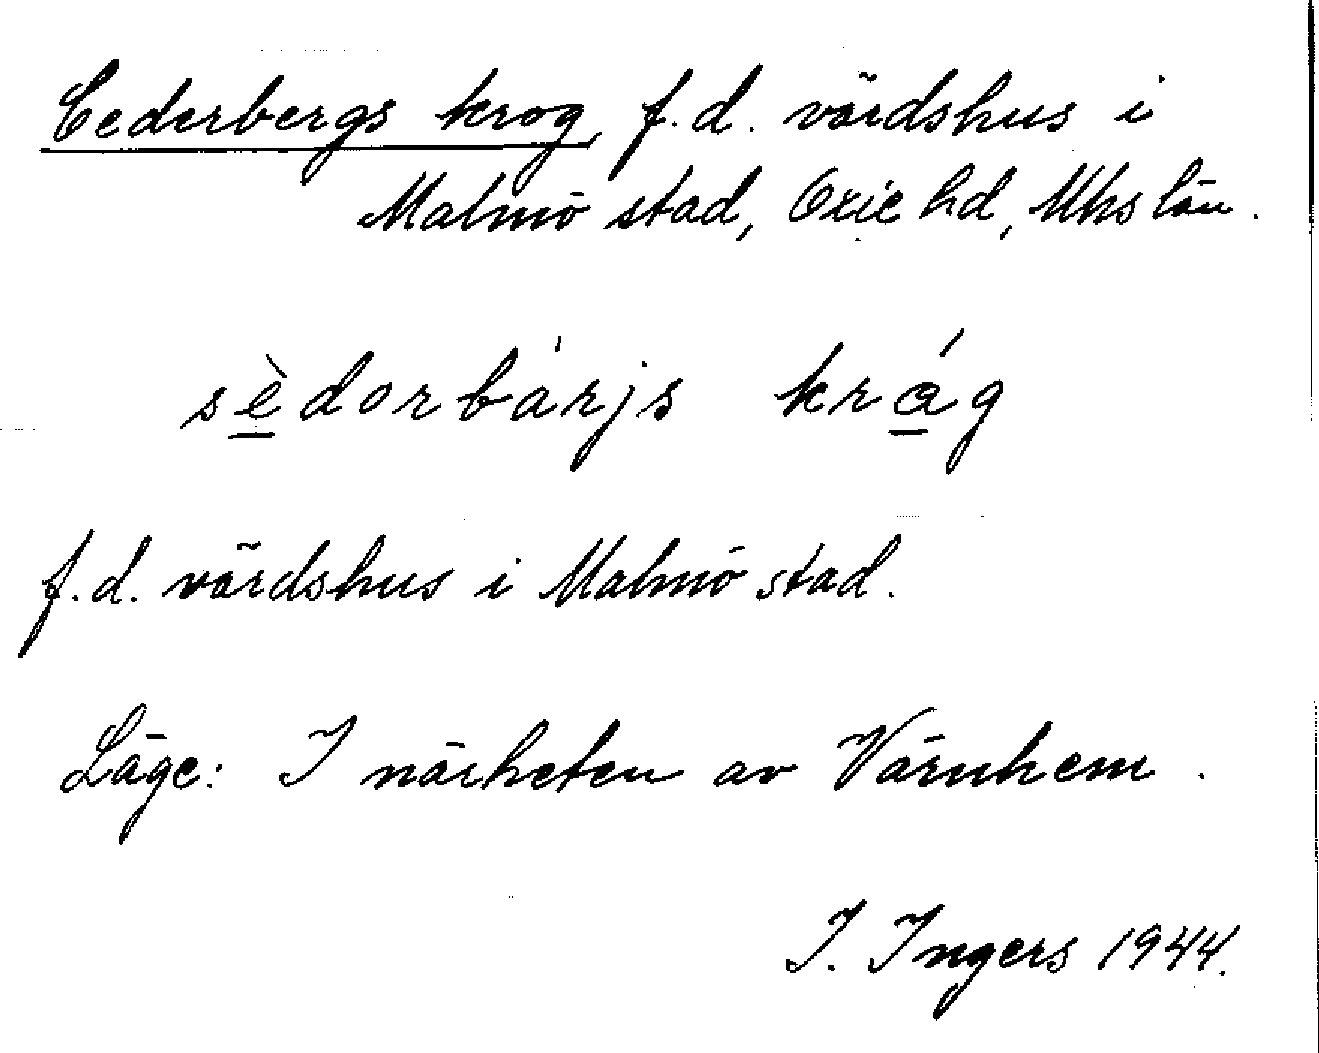 Cederbergs krog, f.d. värdshus i
Malmö stad, Oxie hd, Mhs län.
sèdorbárjs kråg
f.d. värdshus i Malmö stad.
Läge: I närheten av Värnhem.
I. Ingers 1944.